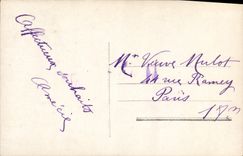 Affectueux souhaits
Amécie
Mme Veuve Mulot
44 rue Ramey
Paris
18m